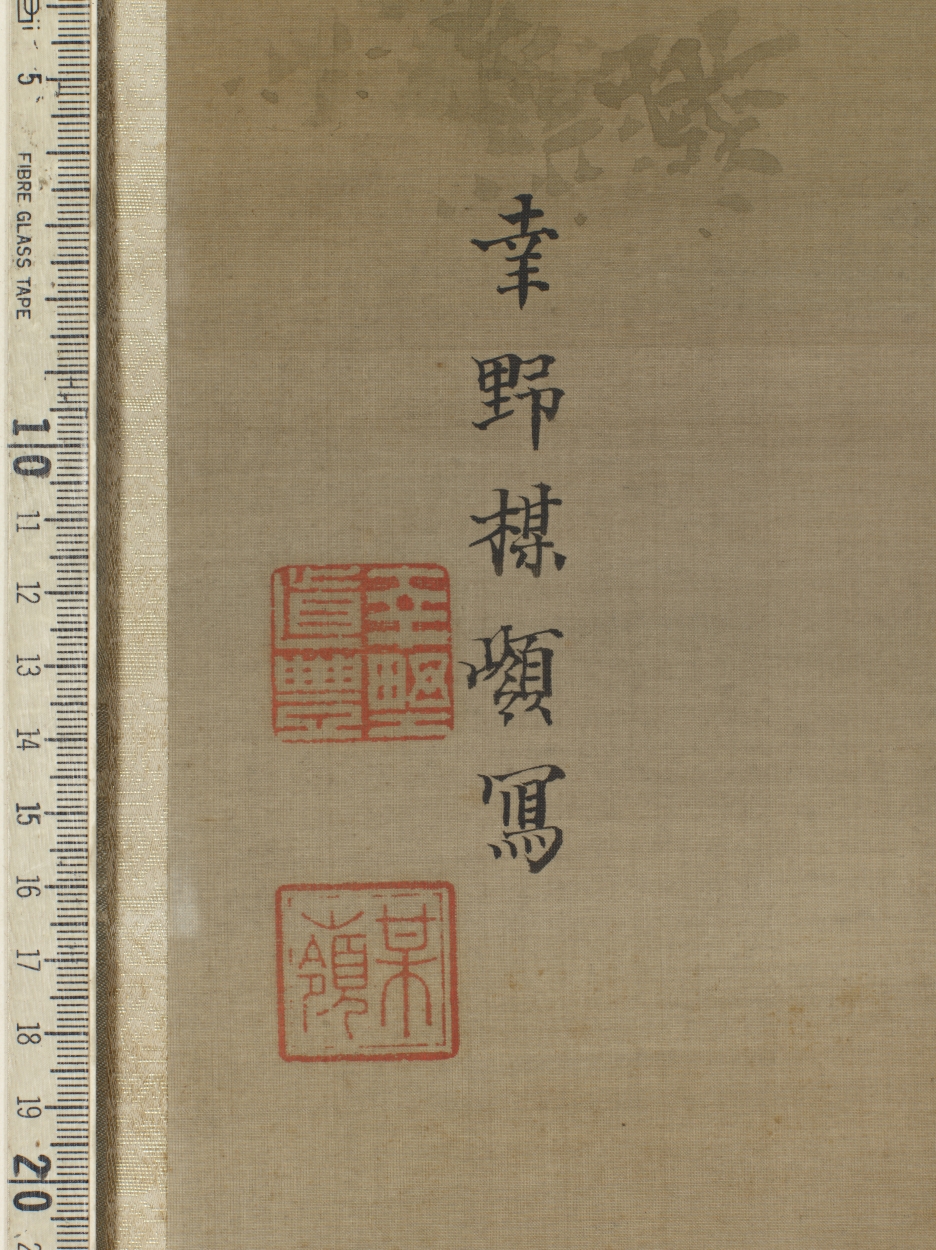 幸野楳嶺寫
幸野直豊
某嶺
5
FIBRE GLASS TAPE
10
11
12
13
14
15
16
17
18
19
20